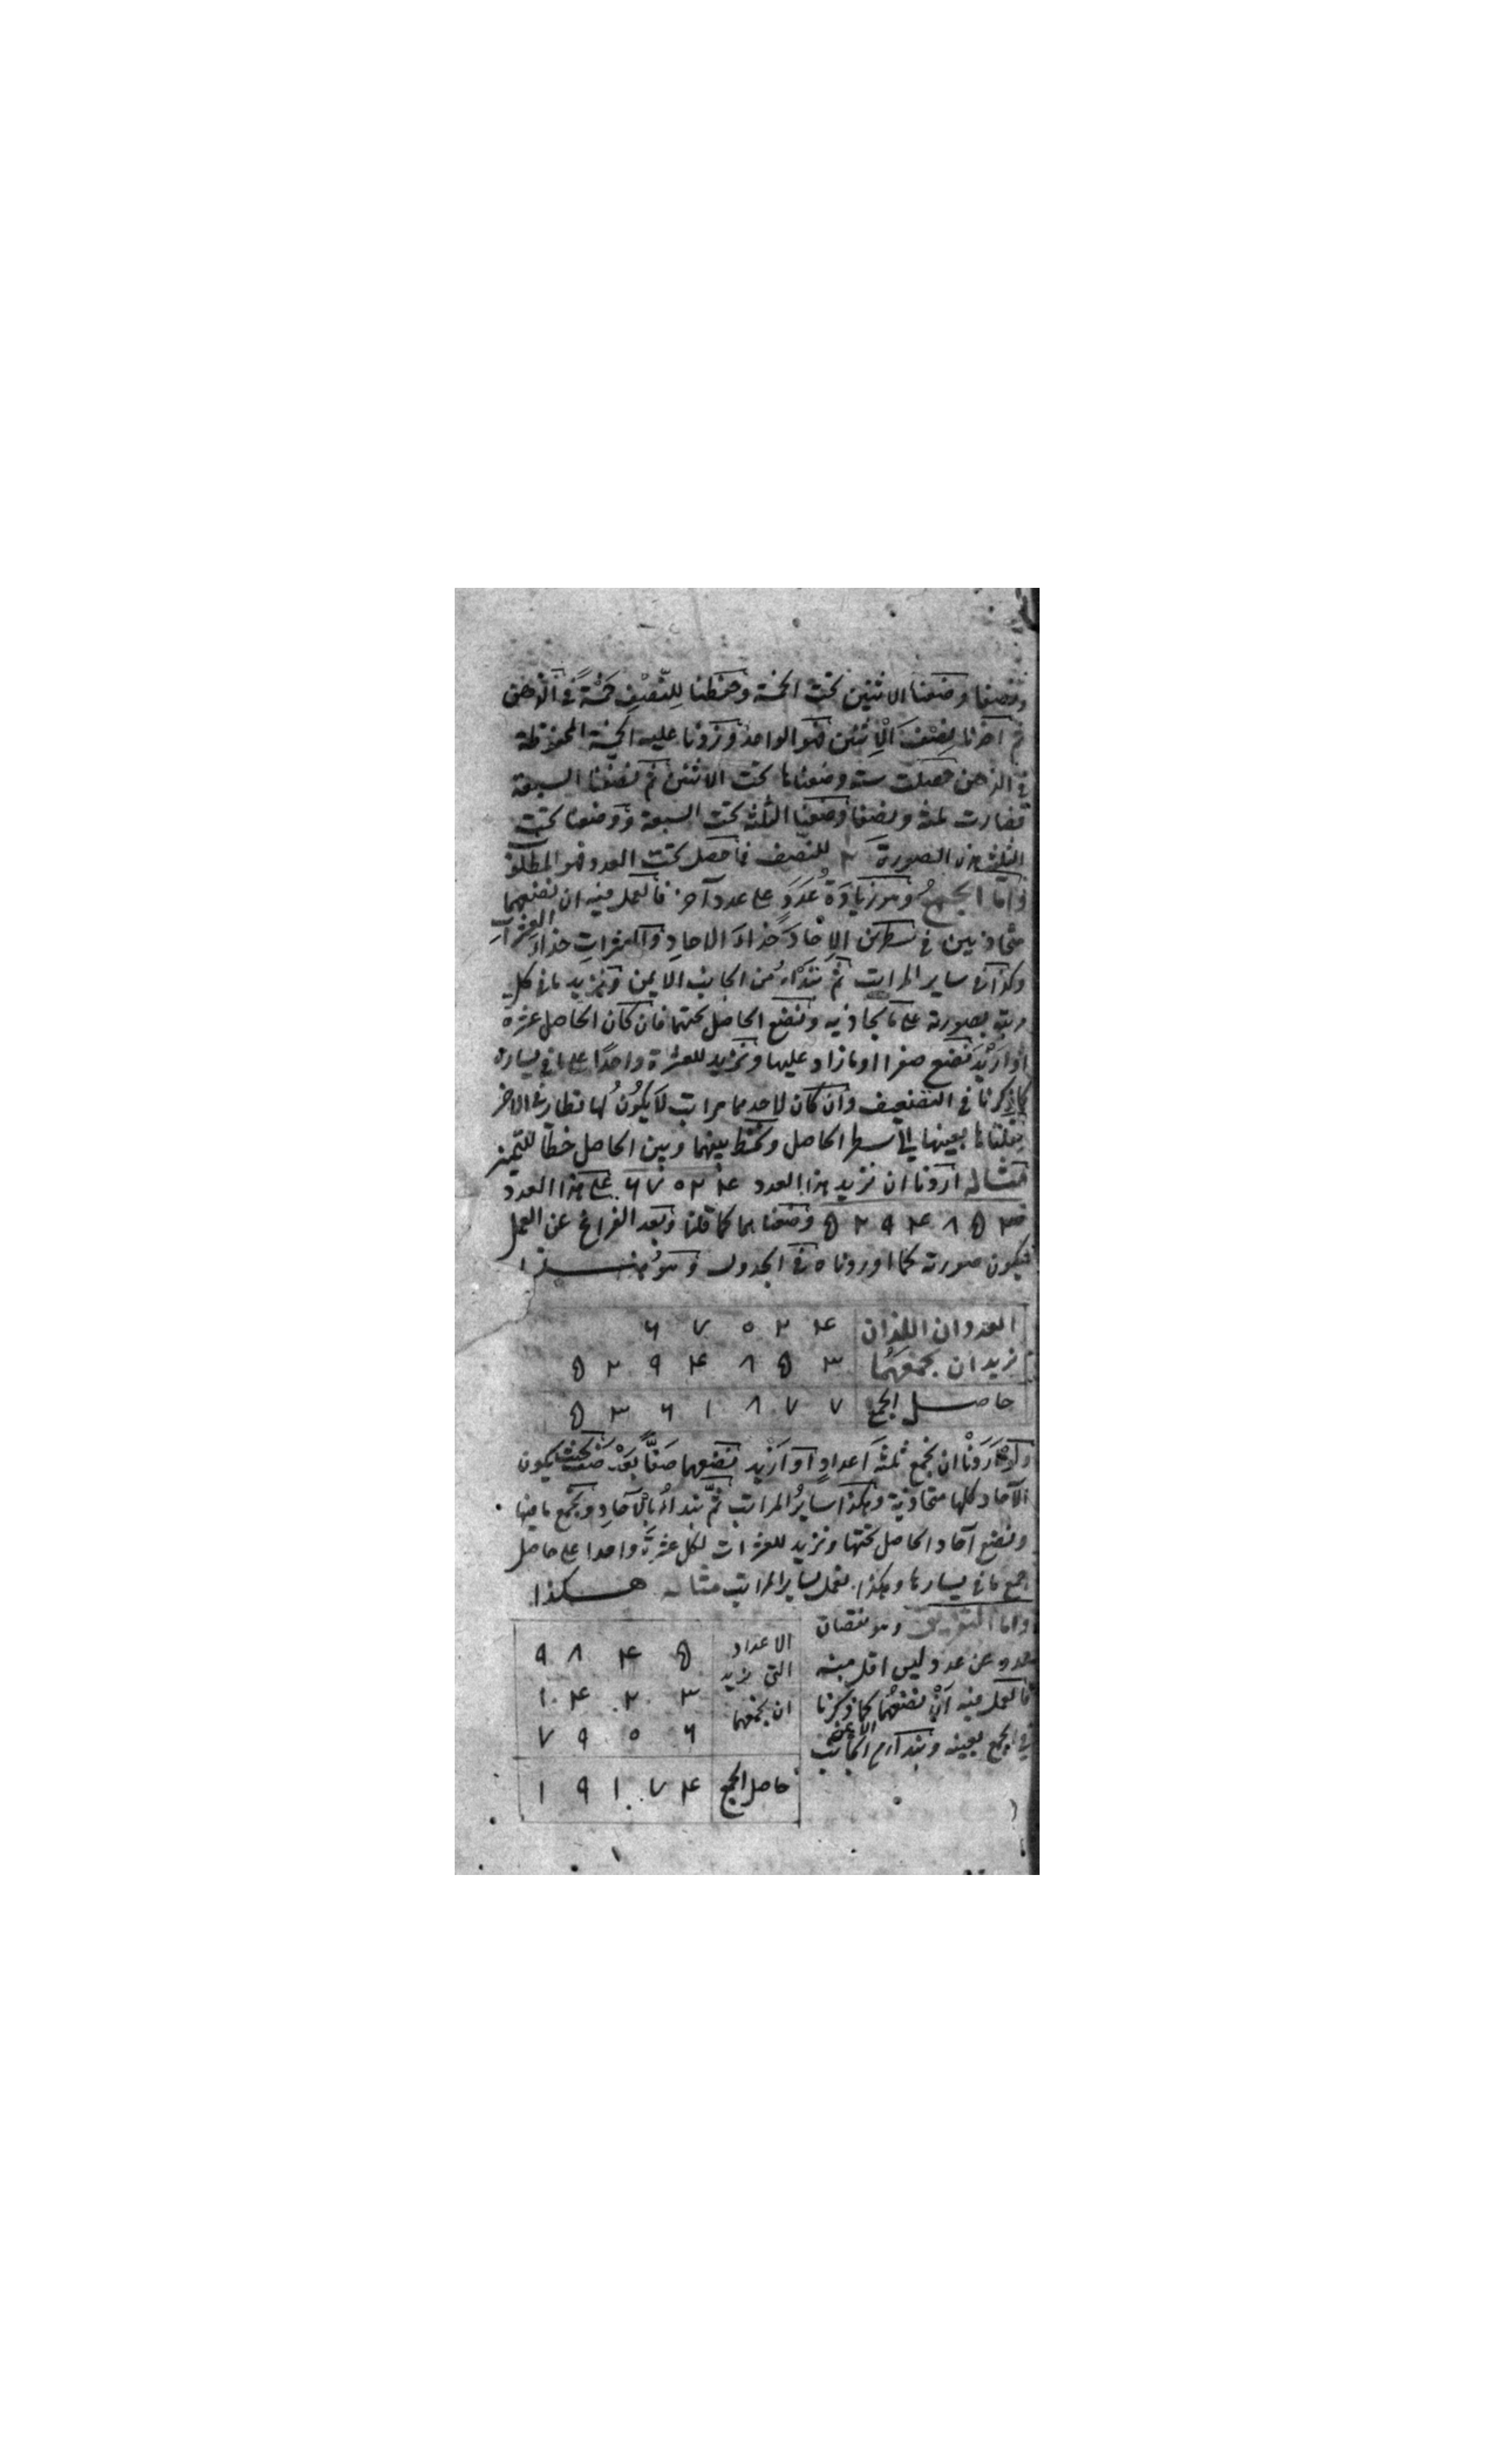 ونصفا وضعنا الاثنين تحت الخمسة وحفظنا للنصف خمسة في الذهن
ثم اخذنا نصف الاثنين فهو الواحد وزدنا عليه الخمسة المحفوظة
في الذهن حصلت ستة وضعناها تحت الاثنين ثم نصفنا السبعة
فصارت ثلثة ونصفا وضعنا الثلثة تحت السبعة ووضعنا تحت
الثلثة هذه الصورة ٢ للنصف فما حصل تحت العدد فهو المطلوب
واما الجمع وهو زيادة عدد على عدد آخر فالعمل فيه ان نضعهما
متحاذيين في سطرين الاحاد حذاء الاحاد والعشرات حذاء العشرات
وكذا في ساير المراتب ثم نبتداء من الجانب الايمن ونزيد ما في كل
مرتبة بصورته على ما يحاذيه ونضع الحاصل تحتهما فان كان الحاصل عشرة
او ازيد نضع صفرا او ما زاد عليها ونزيد للعشرة واحدا على ما في يساره
كما ذكرنا في التضعيف وان كان لاحدهما مراتب لا يكون لها نظاير في الاخر
نقلناها بعينها الى سطر الحاصل ونخط بينهما وبين الحاصل خطا للتميز
مثاله اردنا ان نزيد هذا العدد ۶۷۰۲۴ على هذا العدد
۵۲۹۴۸۵۳ وضعناهما كما قلنا وبعد الفراغ عن العمل
فيكون صورته كما اوردناه في الجدول وهو هذا
العددان اللذان ۶ ۷ ۰ ۲ ۴
نريد ان نجمعهما ۵ ۲ ۹ ۴ ۸ ۵ ۳
حاصل الجمع ۵ ۳ ۶ ۱ ۸ ۷ ۷
ان نجمع ثلثة اعداد او ازيد نضعهما صفا بعد صف بحيث يكون
الآحاد كلها متحاذية وهكذا ساير المراتب ثم نبداء بالآحاد ونجمع ما فيها
ونضع آحاد الحاصل تحتها ونزيد للعشرات لكل عشرة واحدا على حاصل
جمع ما في يسارها وهكذا نعمل بساير المراتب مثاله هكذا
واما التفريق وهو نقصان
عدد عن عدد ليس اقل منه
فالعمل فيه ان نضعهما كما ذكرنا
في الجمع بعينه ونبتداء من الجانب الايمن
الاعداد ۹ ۸ ۴ ۵
التي نريد ۱ ۴ ۲ ۳
ان نجمعها ۷ ۹ ۰ ۶
حاصل الجمع ۱ ۹ ۱ ۷ ۴